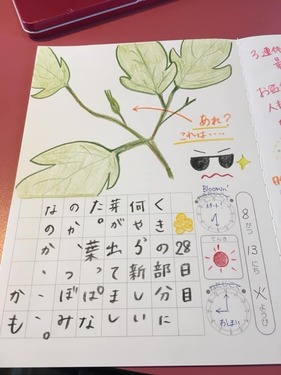 あれ?
これは・・・・
Bloomin'
8がつ13にち火ようび
スタート!
てんき
おしまい
28日目
くきの部分に
何やら新しい
芽が出てまし
た。葉っぱな
のか、つぼみ
なのか、、、
かも
3連休